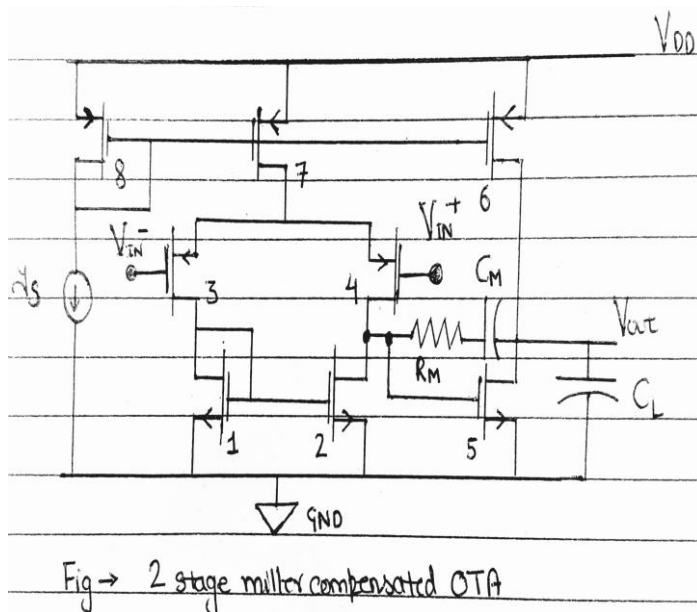 VDD
8
7
6
VIN-
VIN+
IS
3
4
CM
Vout
RM
CL
1
2
5
GND
Fig → 2 stage miller compensated OTA